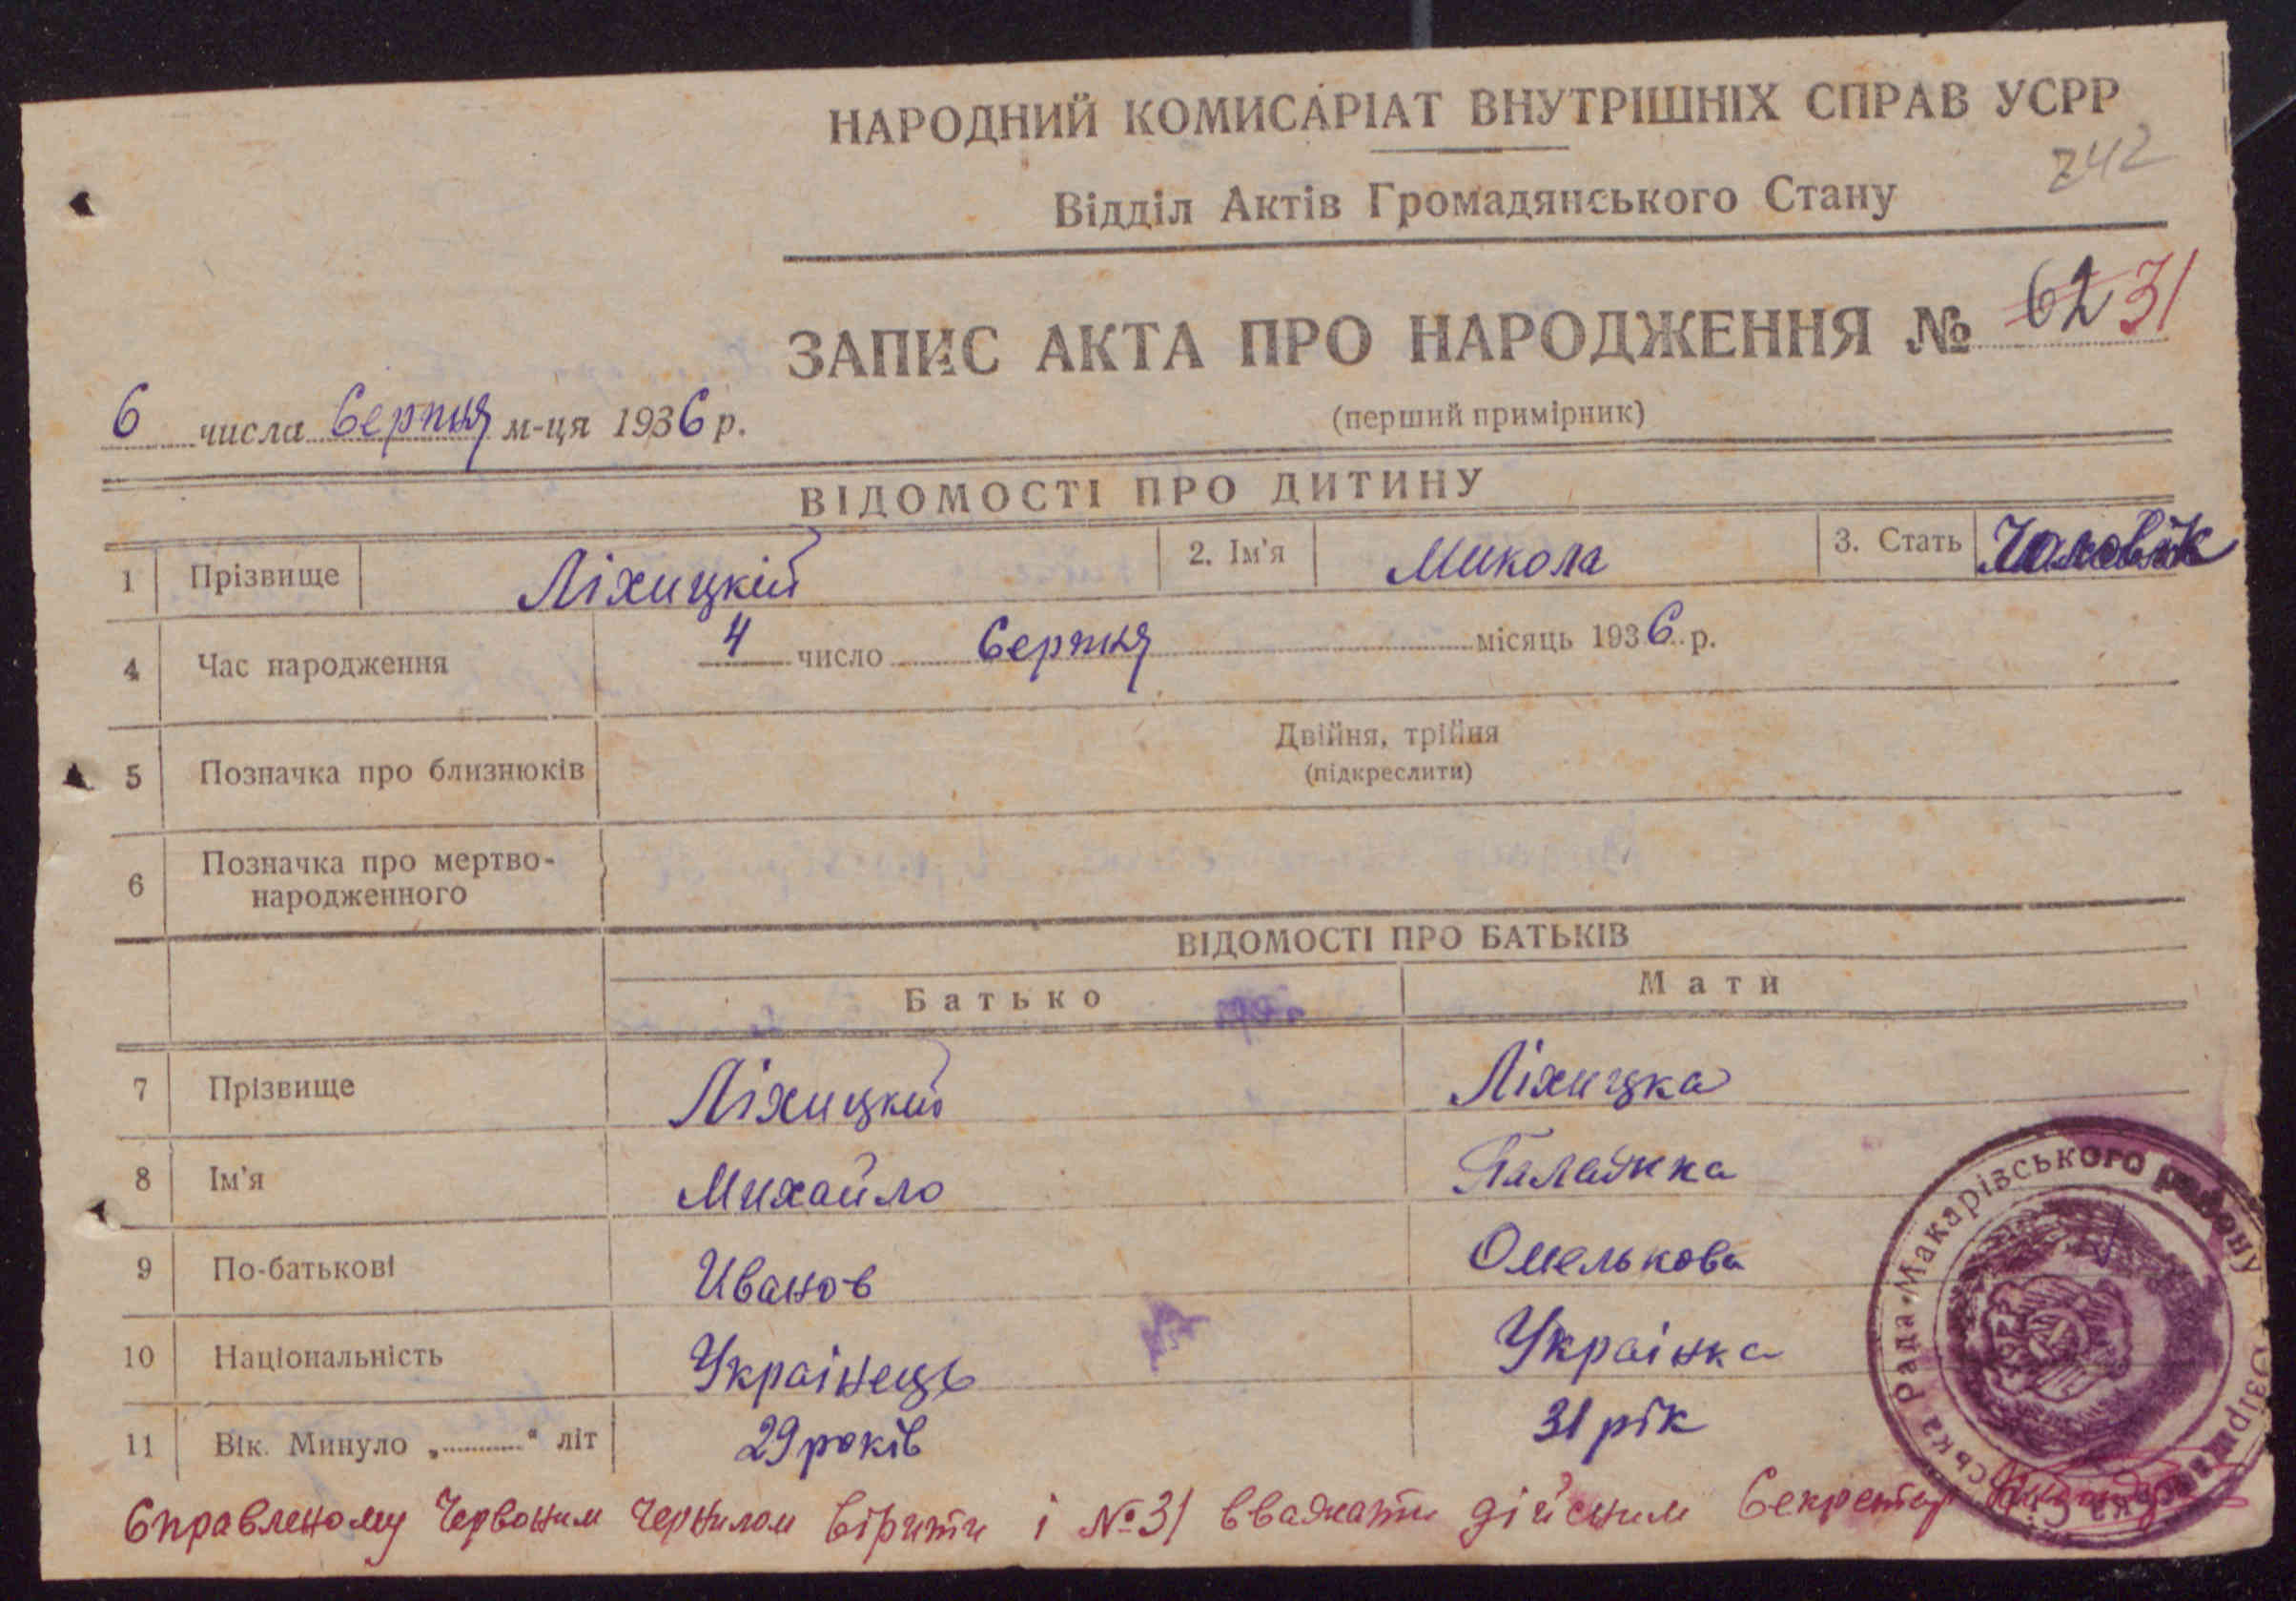 НАРОДНИЙ КОМИСАРІАТ ВНУТРІШНІХ СПРАВ УСРР
242
Відділ Актів Громадянського Стану
ЗАПИС АКТА ПРО НАРОДЖЕННЯ № 62 31
(перший примірник)
6 числа Серпня м-ця 1936 р.
ВІДОМОСТІ ПРО ДИТИНУ
1 Прізвище Ліхицкій 2. Ім'я Микола 3. Стать Чоловік
4 Час народження 4 число Серпня місяць 1936 р.
5 Позначка про близнюків Двійня, трійня
(підкреслити)
6 Позначка про мертво-
народженного
ВІДОМОСТІ ПРО БАТЬКІВ
Батько Мати
7 Прізвище Ліхицкий Ліхицка
8 Ім'я Михайло Палажка
9 По-батькові Иванов Омелькова
10 Національність Українець Українка
11 Вік. Минуло „ “ літ 29 років 31 рік
Справленому Червоним Чернилом вірити і №31 вважати дійсним Секретар
Рада Макарівського району
УСРР